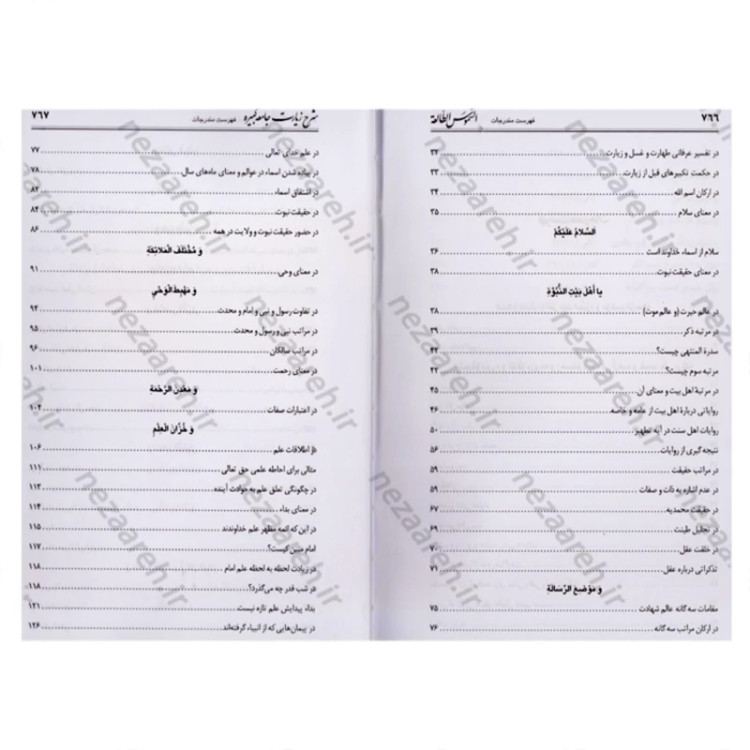 ۷۶۶ فهرست مندرجات الشموس الطالعة
در تفسیر عرفانی طهارت و غسل و زیارت ۳۲
در حکمت تکبیرهای قبل از زیارت ۳۳
در ارکان اسم الله ۳۴
در معنای سلام ۳۵
اَلسَّلامُ عَلَیْکُمْ
سلام از اسماء خداوند است ۳۶
در معنای حقیقت نبوت ۳۸
یا اَهْلَ بَیْتِ النُّبُوَّةِ
در عالم حیرت (و عالم موت) ۳۸
در مرتبه ذکر ۳۹
سدرة المنتهی چیست؟ ۴۲
مرتبه سوم چیست؟ ۴۲
در مرتبهٔ اهل بیت و معنای آن ۴۵
روایاتی دربارهٔ اهل بیت از عامه و خاصه ۴۶
روایات اهل سنت در آیه تطهیر ۵۰
نتیجه گیری از روایات ۵۶
در مراتب حقیقت ۵۹
در عدم اشاره به ذات و صفات ۵۹
در حقیقت محمدیه ۶۷
در تحلیل طینت ۶۹
در خلقت عقل ۷۰
تذکراتی درباره عقل ۷۱
وَ مَوْضِعَ الرِّسالَةِ
مقامات سه گانه عالم شهادت ۷۵
در ارکان مراتب سه گانه ۷۶
شرح زیارت جامعه کبیره فهرست مندرجات ۷۶۷
در علم خدای تعالی ۷۷
در پیاده شدن اسماء در عوالم و معنای ماه‌های سال ۷۸
در اشتقاق اسماء ۸۲
در حقیقت نبوت ۸۴
در حضور حقیقت نبوت و ولایت در همه ۸۶
وَ مُخْتَلَفَ الْمَلائِکَةِ
در معنای وحی ۹۱
وَ مَهْبِطَ الْوَحْیِ
در تفاوت رسول و نبی و امام و محدث ۹۴
در مراتب نبی و رسول و محدث ۹۵
در مراتب سالکان ۹۶
در معنای رحمت ۱۰۱
وَ مَعْدِنَ الرَّحْمَةِ
در اعتبارات صفات ۱۰۴
وَ خُزّانَ الْعِلْمِ
در اطلاقات علم ۱۰۶
مثالی برای احاطه علمی حق تعالی ۱۱۱
در چگونگی تعلق علم به حوادث آینده ۱۱۳
در معنای بداء ۱۱۴
در این که ائمه مظهر علم خداوندند ۱۱۵
امام مبین کیست؟ ۱۱۷
در زیادت لحظه به لحظه علم امام ۱۱۸
در شب قدر چه می‌گذرد؟ ۱۱۸
بداء پیدایش علم تازه نیست ۱۲۱
در پیمان‌هایی که از انبیاء گرفته‌اند ۱۲۶
nezaareh.ir
nezaareh.ir
nezaareh.ir
nezaareh.ir
nezaareh.ir
nezaareh.ir